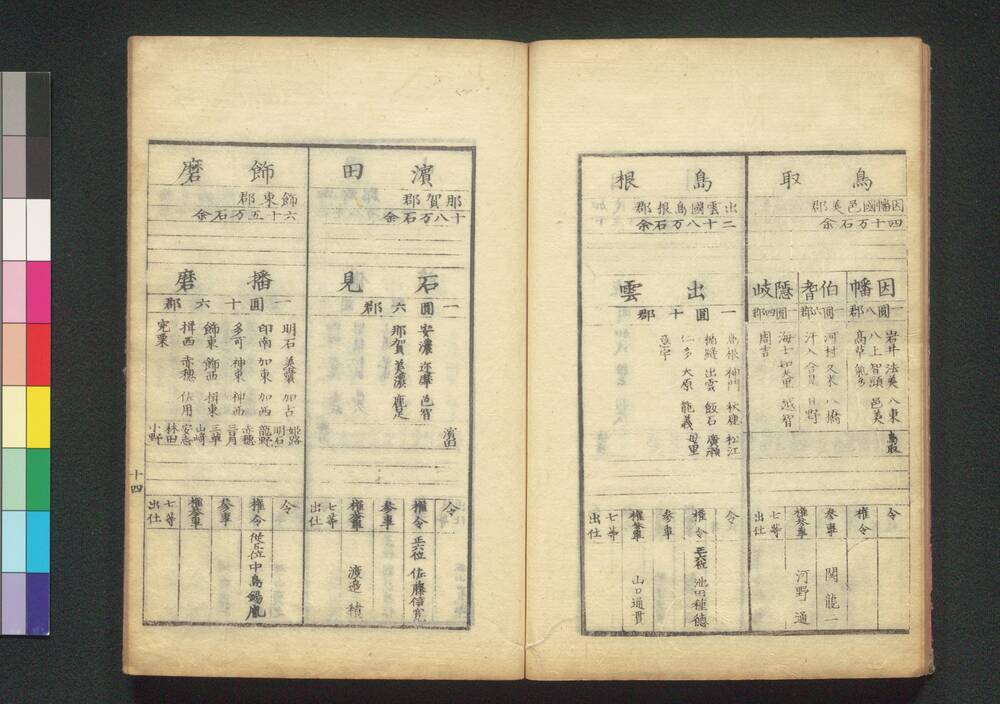 鳥取
因幡國邑美郡
四十万石余
因幡
一圓八郡
岩井 法美 八東
八上 智頭 邑美
高草 氣多
鳥取
伯耆
一圓六郡
河村 久米 八橋
汗入 會見 日野
隱岐
一圓四郡
海士 知夫里 越智
周吉
令
權令
參事 関龍一
權參事 河野通
七等出仕
島根
出雲國島根郡
二十八万石余
出雲
一圓十郡
島根 神門 秋鹿
楯縫 出雲 飯石
仁多 大原 能義
意宇
松江
廣瀬
母里
令
權令 正六位 池田種徳
參事
權參事 山口通貫
七等出仕
濱田
那賀郡
十八万石余
石見
一圓六郡
安濃 迩摩 邑智
那賀 美濃 鹿足
濱田
令
權令 正六位 佐藤信寛
參事
權參事 渡邉積
七等出仕
飾磨
飾東郡
六十五万石余
播磨
一圓十六郡
明石 美嚢 加古
印南 加東 加西
多可 神東 神西
飾東 飾西 揖東
揖西 赤穂 佐用
宍粟
姫路
明石
龍野
赤穂
三日月
三草
山崎
安志
林田
小野
令
權令 従五位 中島錫胤
參事
權參事
七等出仕
十四